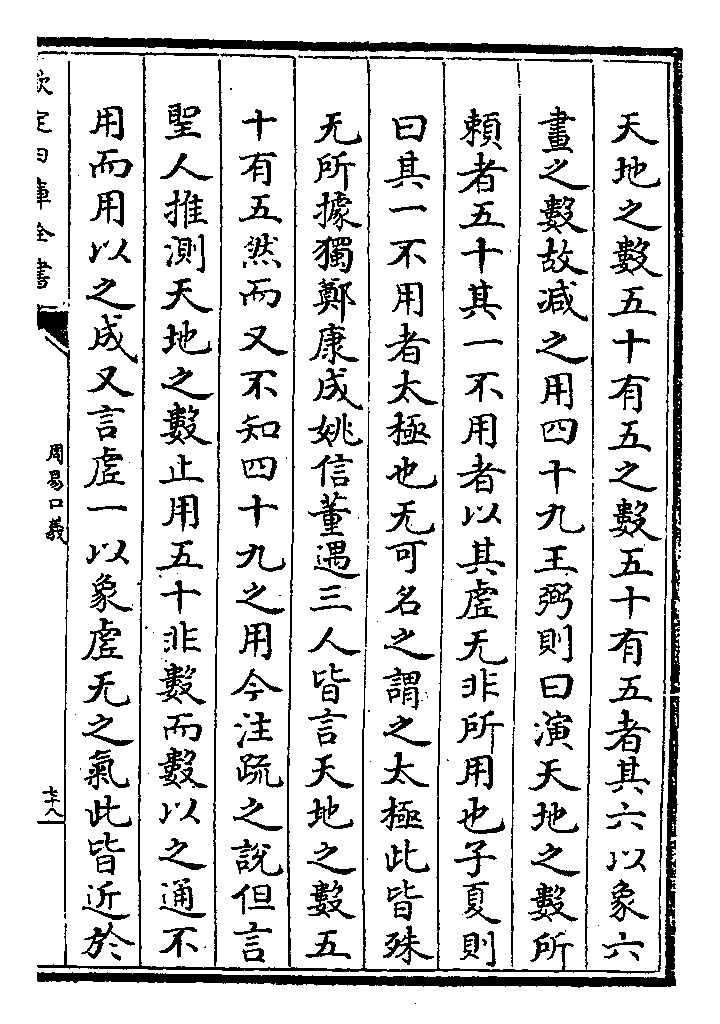 天地之數五十有五之數五十有五者其六以象六
畫之數故減之用四十九王弼則曰演天地之數所
頼者五十其一不用者以其虛无非所用也子夏則
曰其一不用者太極也无可名之謂之太極此皆殊
无所據獨鄭康成姚信董遇三人皆言天地之數五
十有五然而又不知四十九之用今注疏之說但言
聖人推測天地之數止用五十非數而數以之通不
用而用以之成又言虛一以象虛无之氣此皆近於
欽定四庫全書
周易口義